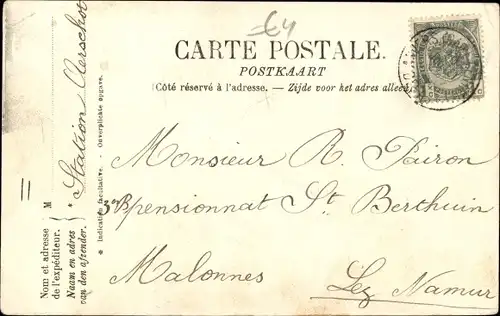 64
CARTE POSTALE.
POSTKAART
(Côté réservé à l'adresse. — Zijde voor het adres alleen
Monsieur R. Pairon
pensionnat St Berthuin
Malonnes
Lez Namur
Nom et adresse de l'expéditeur. M
Naam en adres van den afzender.
Station Aerschot
* Indication facultative. - Onverplichte opgave. *